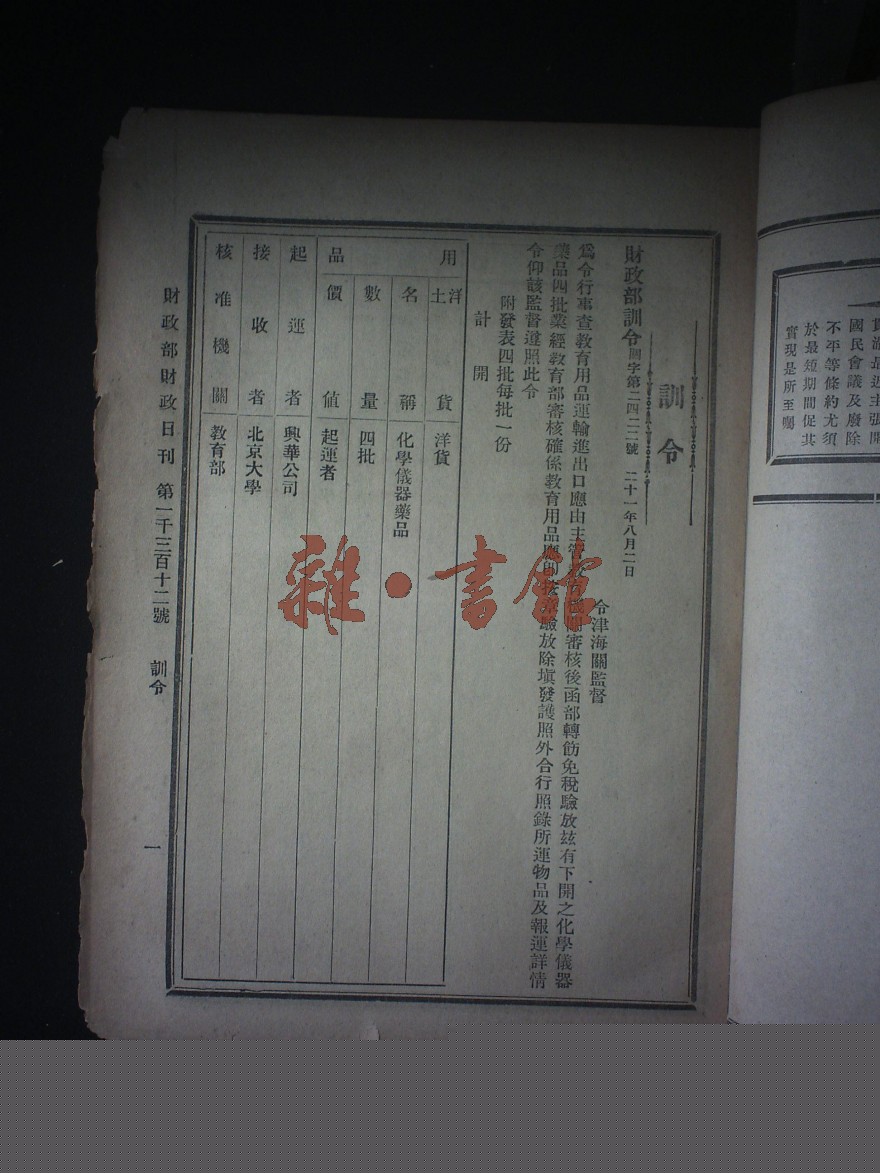 貨滄是近主張開
國民會議及廢除
不平等條約尤須
於最短期間促其
實現是所至囑
訓令
財政部訓令 關字第二四二二號 二十一年八月二日
令津海關監督
爲令行事查教育用品運輸進出口應由主管教育機關審核後函部轉飭免稅驗放玆有下開之化學儀器
藥品四批業經教育部審核確係教育用品應即核准驗放除塡發護照外合行照錄所運物品及報運詳情
令仰該監督遵照此令
附發表四批每批一份
計開
用品
洋土貨 洋貨
名稱 化學儀器藥品
數量 四批
價値 起運者
起運者 興華公司
接收者 北京大學
核准機關 教育部
財政部財政日刊 第一千三百十二號 訓令 一
雜·書館